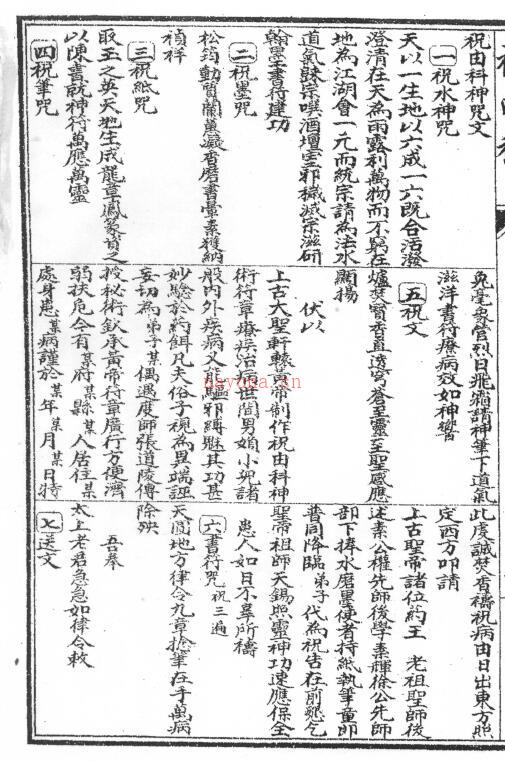 祝由科神咒文
一祝水神咒
天以一生地以六成一六既合活潑
澄清在天為雨露利萬物而不窮在
地為江湖會一元而統宗請為法水
道氣宗噀酒壇室邪穢滅宗滋研
翰墨書符建功
二祝墨咒
松筠動質蘭薰凝香磨書彙素獲納
禎祥
三祝紙咒
取玉之英天地生成龍章鳳篆之
以陳書就神符萬應萬靈
四祝筆咒
兔毫象管烈日飛霜請神筆下道氣
滋洋書符療病致如神響
五祝文
爐焚寶香直透穹蒼至靈至聖感應
顯揚
伏以
上古大聖軒轅黃帝制作祝由科神
術符章療疾治病世間男婦小兒諸
般內外疾病又能驅邪縛魅其功甚
妙驗於藥餌凡夫俗子視為異端誣
妄切為弟子某偶遇度師張道陵傳
授秘術欽承黃帝符章廣行方便濟
弱扶危今有某府某縣某人居住某
處身患某病謹於某年某月某日特
此虔誠焚香禱祝病由日出東方照
定西方叩請
上古聖帝諸位药王 老祖聖師後
述素公權先師後學素輝徐公先師
部下捧水磨墨使者持紙執筆童郎
普同降臨弟子代為祝告在前懇乞
聖帝祖師天錫照靈神功速應保全
患人如日不辜所禱
六書符咒 祝三遍
天圓地方律令九章捻筆在手萬病
除殃
吾奉
太上老君急急如律令敕
七送文